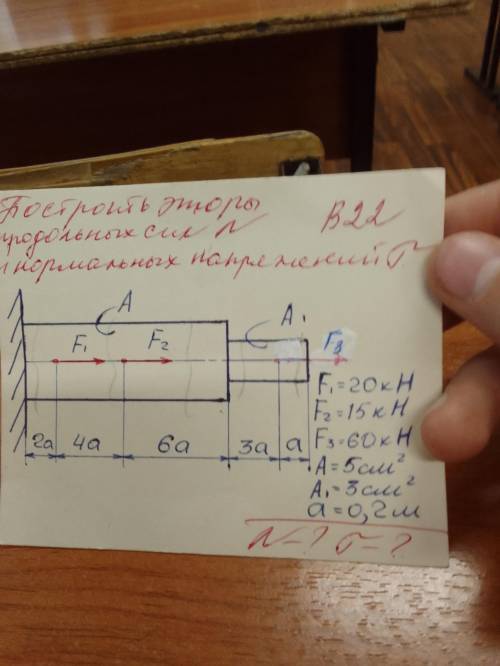 Построить эпюры
продольных сил N
и нормальных напряжений σ.
B22
A
A₁
F₁
F₂
F₃
F₁=20кН
F₂=15кН
F₃=60кН
A=5см²
A₁=3см²
a=0,2м
2a 4a 6a 3a a
N=? σ=?